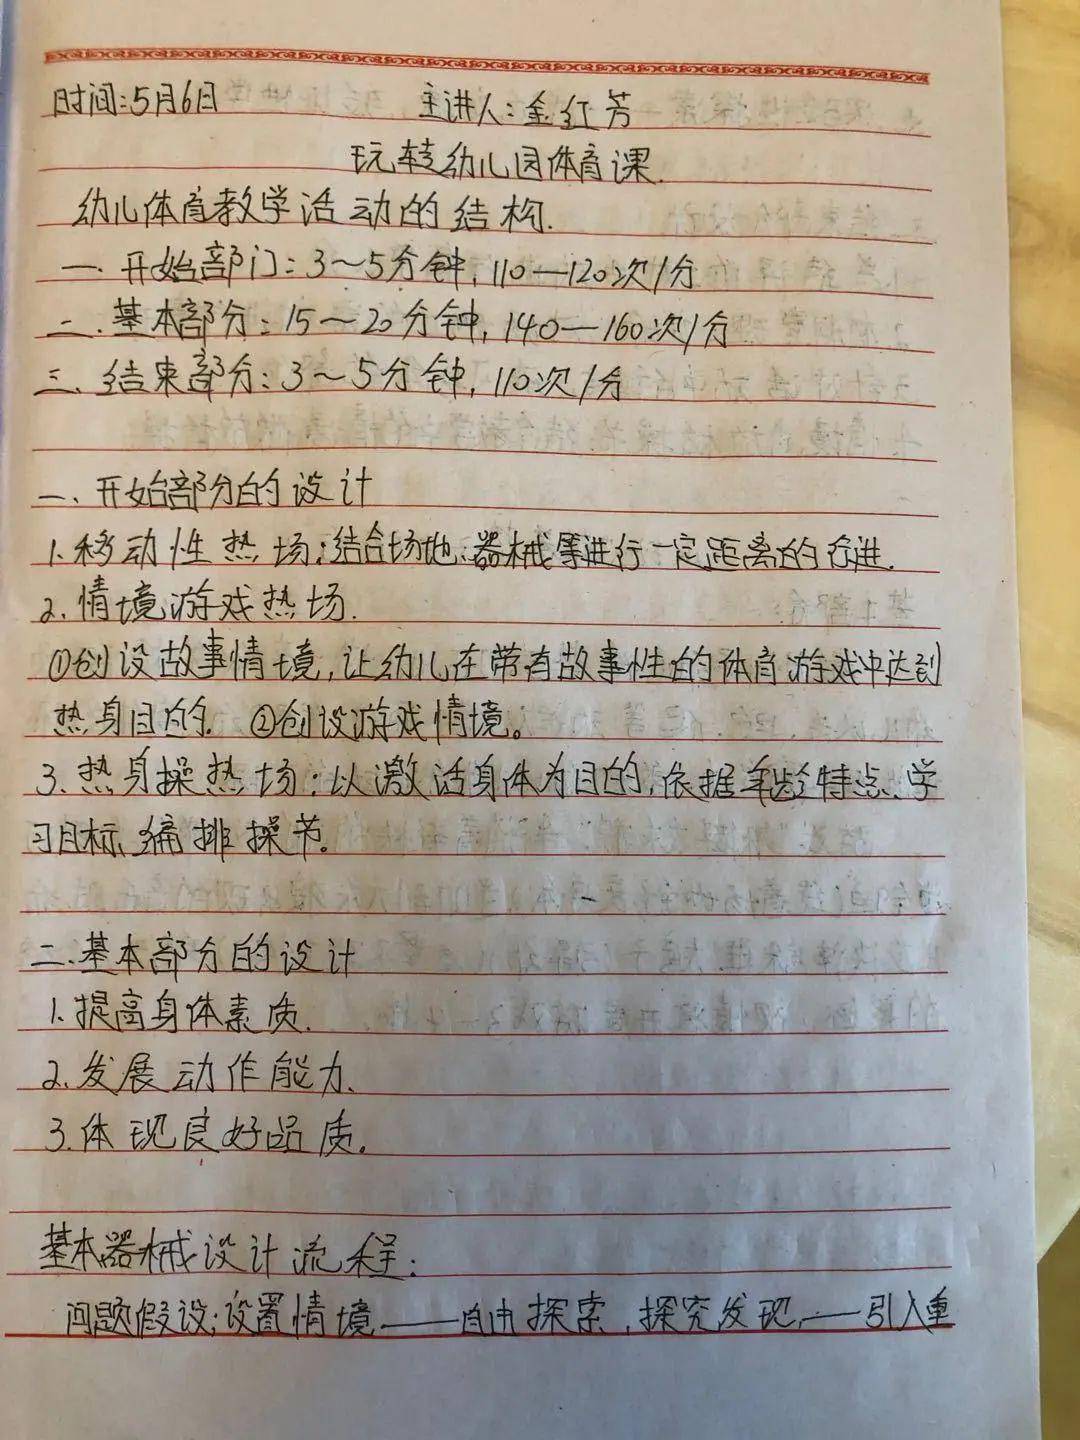 时间:5月6日 主讲人:金红芳
玩转幼儿园体育课.
幼儿体育教学活动的结构.
一.开始部门:3～5分钟,110—120次/分
二.基本部分:15～20分钟,140—160次/分
三、结束部分:3～5分钟,110次/分
一、开始部分的设计
1.移动性热场:结合场地、器械等进行一定距离的行进.
2.情境游戏热场.
①创设故事情境,让幼儿在带有故事性的体育游戏中达到
热身目的. ②创设游戏情境。
3.热身操热场:以激活身体为目的,依据年龄特点、学
习目标、编排操节。
二、基本部分的设计
1.提高身体素质.
2.发展动作能力.
3.体现良好品质。
基本器械设计流程:
问题假设;设置情境——自由探索,探究发现,—引入重